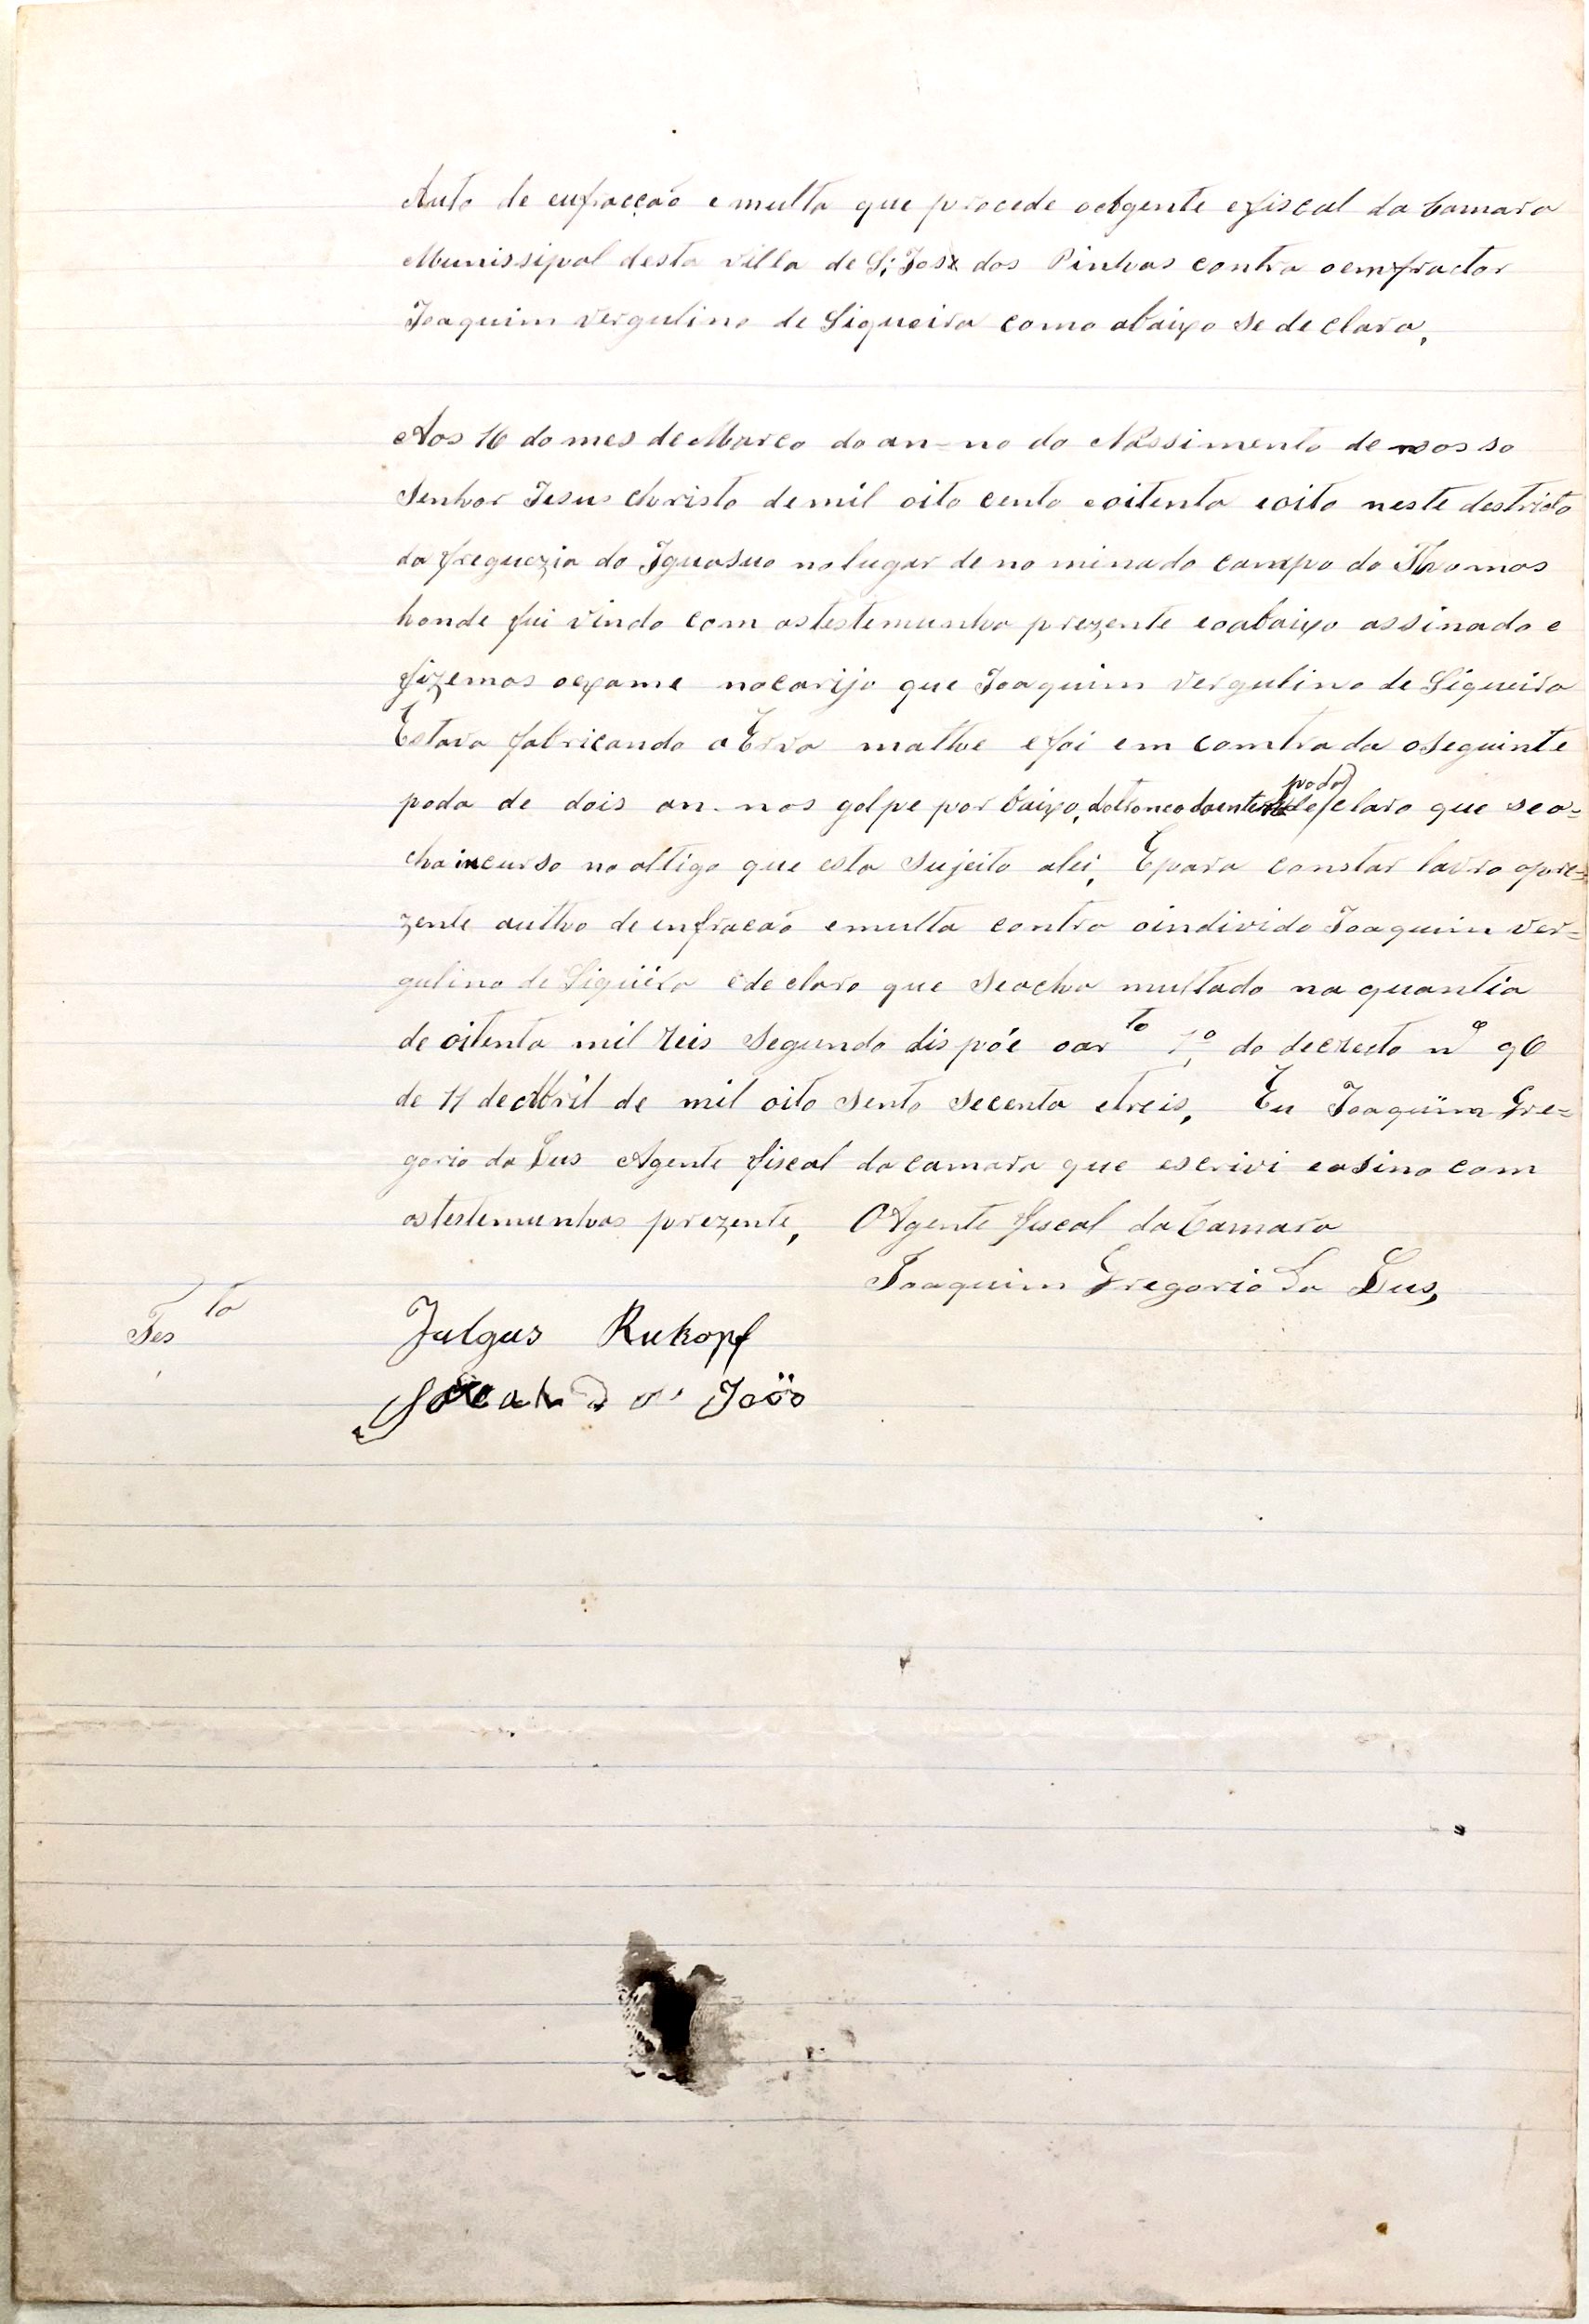 Auto de enfracção e multa que procede o Agente e fiscal da Camara
Munissipal desta villa de S. José dos Pinhas contra o emfractor
Joaquim Vergulino de Siqueira como abaixo se declara,
Aos 16 do mes de Março do an-no do Nassimento de nosso
Senhor Jesus Christo de mil oito cento e oitenta e oito neste destricto
da freguezia do Iguasuo no lugar denominado campo do Thomas
honde fui vindo com as testemunha prezente e o abaixo assinado e
fizemos o exame no carijo que Joaquim Vergulino de Siqueira
Estava fabricando a Erva matthe e foi em comtrada o seguinte
poda de dois an-nos golpe por baixo, do tronco da enteira poda declaro que se a-
cha incurso no altigo que esta sujeito a lei, E para constar lavro o pre-
zente autho de enfracão e multa contra o individo Joaquim Ver-
gulino de Siguéra e declaro que se acha multado na quantia
de oitenta mil reis Segundo dispõe o arto 1º do decreto nº 96
de 11 de Abril de mil oito sento secenta e treis, Eu Joaquim Gre-
gorio da Lus Agente fiscal da camara que escrivi e asino com
as testemunhas prezente, O Agente fiscal da Camara
Joaquim Gregorio da Lus,
Testo Julgus Rukopf
João